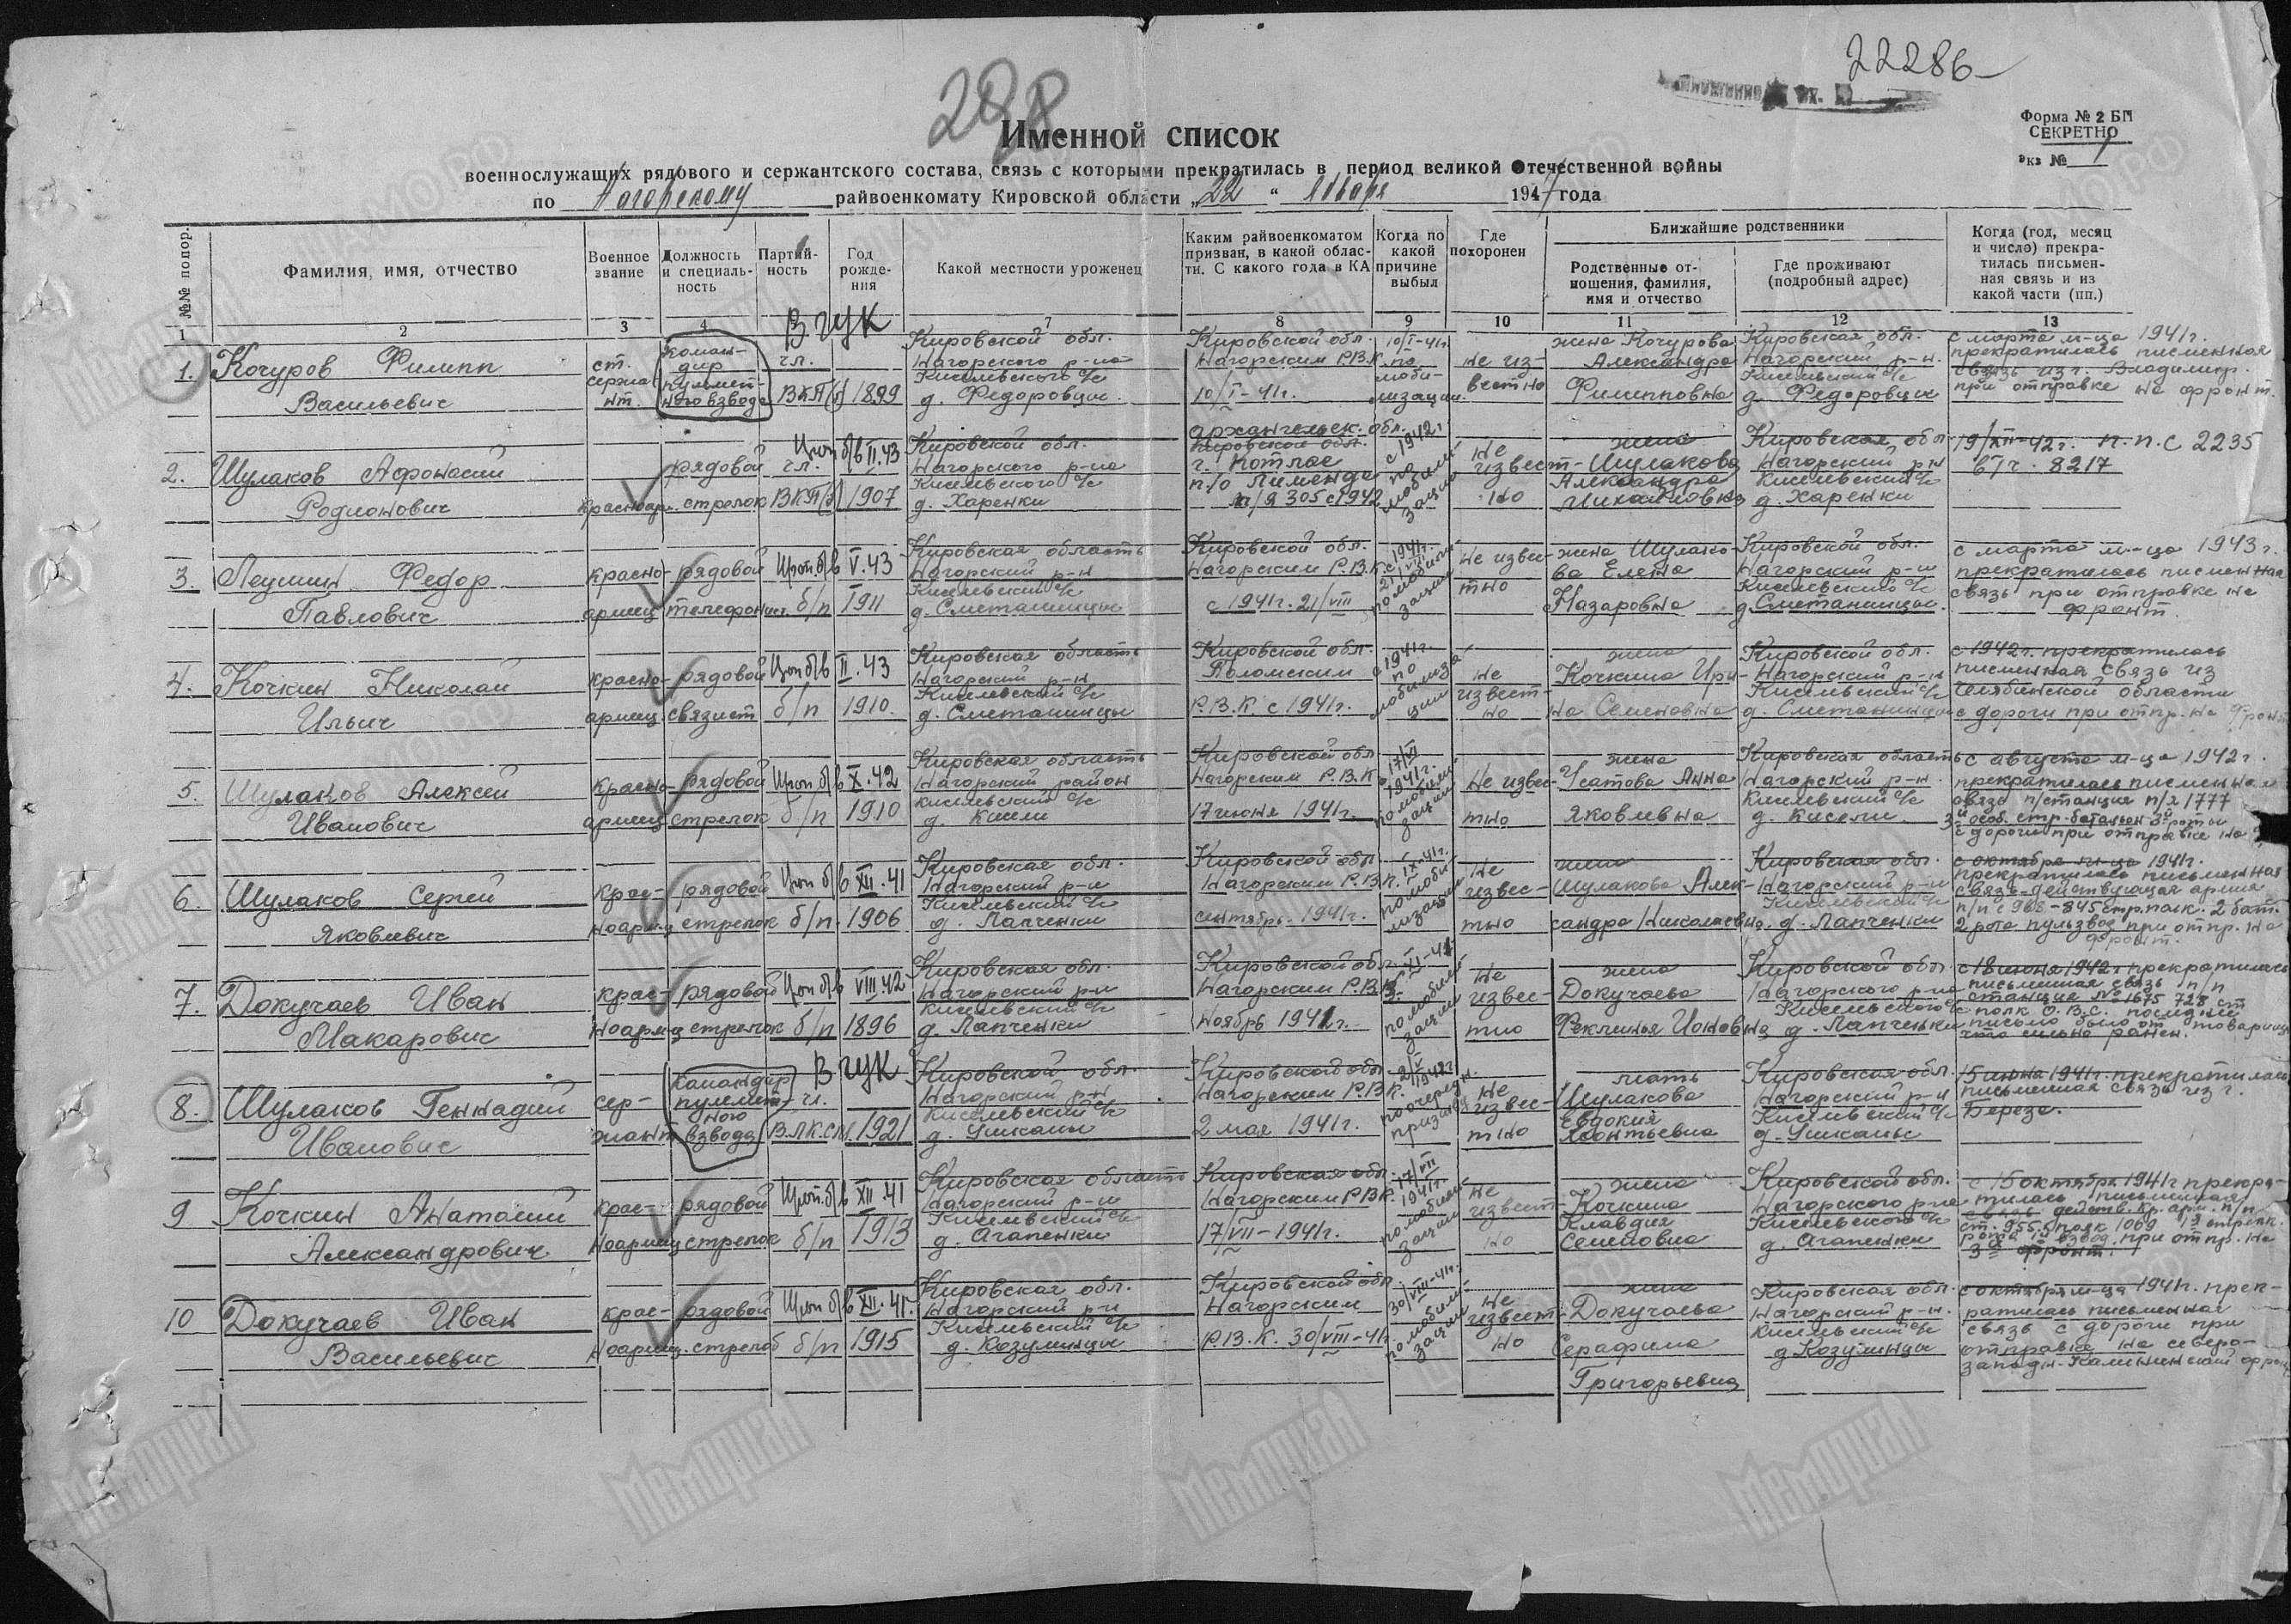 22286
298
Именной список
Форма № 2 БП
СЕКРЕТНО
экз № 1
военнослужащих рядового и сержантского состава, связь с которыми прекратилась в период великой Отечественной войны
по Нагорскому райвоенкомату Кировской области „22“ января 1947 года
№№ по пор.
Фамилия, имя, отчество
Военное звание
Должность и специальность
Партийность
Год рождения
Какой местности уроженец
Каким райвоенкоматом призван, в какой области. С какого года в КА
Когда по какой причине выбыл
Где похоронен
Ближайшие родственники
Родственные отношения, фамилия, имя и отчество
Где проживают (подробный адрес)
Когда (год, месяц и число) прекратилась письменная связь и из какой части (пп.)
1 2 3 4 7 8 9 10 11 12 13
В ГУК
1. Кочуров Филипп Васильевич
ст. сержант.
командир пулеметного взвода
чл. ВКП(б)
1899
Кировской обл. Нагорского р-на Киселевского с/с д. Федоровцы.
Кировской обл. Нагорским Р.В.К. 10/I-41г.
10/I-41г. по мобилизации.
не известно
жена Кочурова Александра Филипповна
Кировская обл. Нагорский р-н. Киселевский с/с д. Федоровцы
с марта м-ца 1941г. прекратилась писменная связь из г. Владимир. при отправке на фронт.
2. Шулаков Афонасий Родионович
красноарм.
рядовой стрелок
чл. ВКП(б)
Проп. б/в II.43
1907
Кировской обл. Нагорского р-на Киселевского с/с д. Харенки
Архангельск. обл. Кировской обл. г. Котлас п/о Лименда п/я 305 с 1942
с 1942г по мобилизации
не известно
жена Шулакова Александра Михайловна
Кировская обл Нагорский р-н Киселевский с/с д. Харенки
19/XII-42г. п.п.с 2235 в/ч. 8217
3. Леушин Федор Павлович
красноармеец
рядовой телефонист.
Проп. б/в V.43
б/п
1911
Кировская область Нагорский р-н Киселевский с/с д. Сметанинцы
Кировской обл. Нагорским Р.В.К. с 1941г. 21/VIII
с 1941г. 21/VIII по мобилизации
Не известно
жена Шулакова Елена Назаровна
Кировской обл. Нагорский р-н Киселевского с/с д. Сметанинцы.
с марта м-ца 1943г. прекратилась писменная связь при отправке на фронт.
4. Кочкин Николай Ильич
красноармеец.
рядовой связист
Проп б/в II.43
б/п
1910.
Кировская область Нагорский р-н Киселевский с/с д. Сметанинцы
Кировской обл. Поломским Р.В.К. с 1941г.
с 1941г. по мобилизации
не известно
жена Кочкина Ирина Семеновна
Кировской обл. Нагорский р-н Киселевский с/с д. Сметанинцы
с 1942г. прекратилась писменная связь из Челябинской области с дороги при отпр. на фронт
5. Шулаков Алексей Иванович
красноармеец
рядовой стрелок
Проп. б/в X.42
б/п
1910
Кировская область Нагорский район Киселевский с/с д. Кисели
Кировской обл Нагорским Р.В.К 17 июня 1941г.
17/VI 1941г. по мобилизации
Не известно
жена Усатова Анна Яковлевна
Кировская область Нагорский р-н Киселевский с/с д. Кисели
с августа м-ца 1942г. прекратилась писменная связь п/станция п/я 1777 3й особ. стр. батальон 3 роты с дороги при отправке на
6. Шулаков Сергей Яковлевич
красноармеец
рядовой стрелок
Проп б/в XII.41
б/п.
1906
Кировская обл. Нагорский р-н Киселевский с/с д. Лапченки
Кировской обл Нагорским Р.В.К. сентябрь. 1941г.
IX-41г. по мобилизации
Не известно
жена Шулакова Александра Николаевна.
Кировская обл. Нагорский р-н Киселевский с/с д. Лапченки
с октября м-ца 1941г. прекратилась письменная связь-действующая армия п/п с 908-845 стр. полк. 2 бат. 2 рота пульзвод при отпр. на фронт.
7. Докучаев Иван Макарович
красноармеец
рядовой стрелок
Проп б/в VIII.42
б/п
1896
Кировская обл. Нагорский р-н Киселевский с/с д. Лапченки
Кировской обл Нагорским Р.В.К. Ноябрь 1941г.
XI-41 по мобилизации
Не известно
жена Докучаева Феклинья Ионовна
Кировской обл. Нагорского р-на Киселевского с/с д. Лапченки
с 18 июня 1942г прекратилась письменная связь п/п станция № 1675 728 ст полк О.В.С. последнее письмо было от товарища что сильно ранен.
В ГУК
8. Шулаков Геннадий Иванович
сержант
командир пулеметного взвода
чл. В.Л.К.С.М.
1921
Кировской обл. Нагорский р-н Киселевский с/с д. Ушканы
Кировской обл Нагорским Р.В.К. 2 мая 1941г.
2/V 1942г по очередн. призыву
Не известно
мать Шулакова Евдокия Леонтьевна
Кировская обл. Нагорский р-н Киселевский с/с д. Ушканы
15 июня 1941г. прекратилась письменная связь из г. Береза.
9 Кочкин Анатолий Александрович
красноармеец
рядовой стрелок
Проп. б/в XII.41
б/п
1913
Кировская область Нагорский р-н Киселевский с/с д. Агапенки
Кировская обл. Нагорским Р.В.К. 17/VII-1941г.
17/VII 1941г по мобилизации
Не известно
жена Кочкина Клавдия Семеновна
Кировской обл. Нагорского р-на Киселевского с/с д. Агапенки
с 15 октября 1941г прекратилась письменная связь действ. Кр. арм. п/п ст. 955 полк 1069 1я стрелк. рота взвод при отпр. на фронт.
10 Докучаев Иван Васильевич
красноармеец.
рядовой стрелок
Проп б/в XII.41г.
б/п
1915
Кировская обл. Нагорский р-н Киселевский с/с д. Козулинцы
Кировской обл Нагорским Р.В.К. 30/VIII-41г
30/VIII-41г. по мобилизации
Не известно
жена Докучаева Серафима Григорьевна
Кировская обл. Нагорский р-н. Киселевский с/с д. Козулинцы
с октября м-ца 1941г. прекратилась письменная связь с дороги при отправке на северо-западн.-Калининский фронт
Мемориал